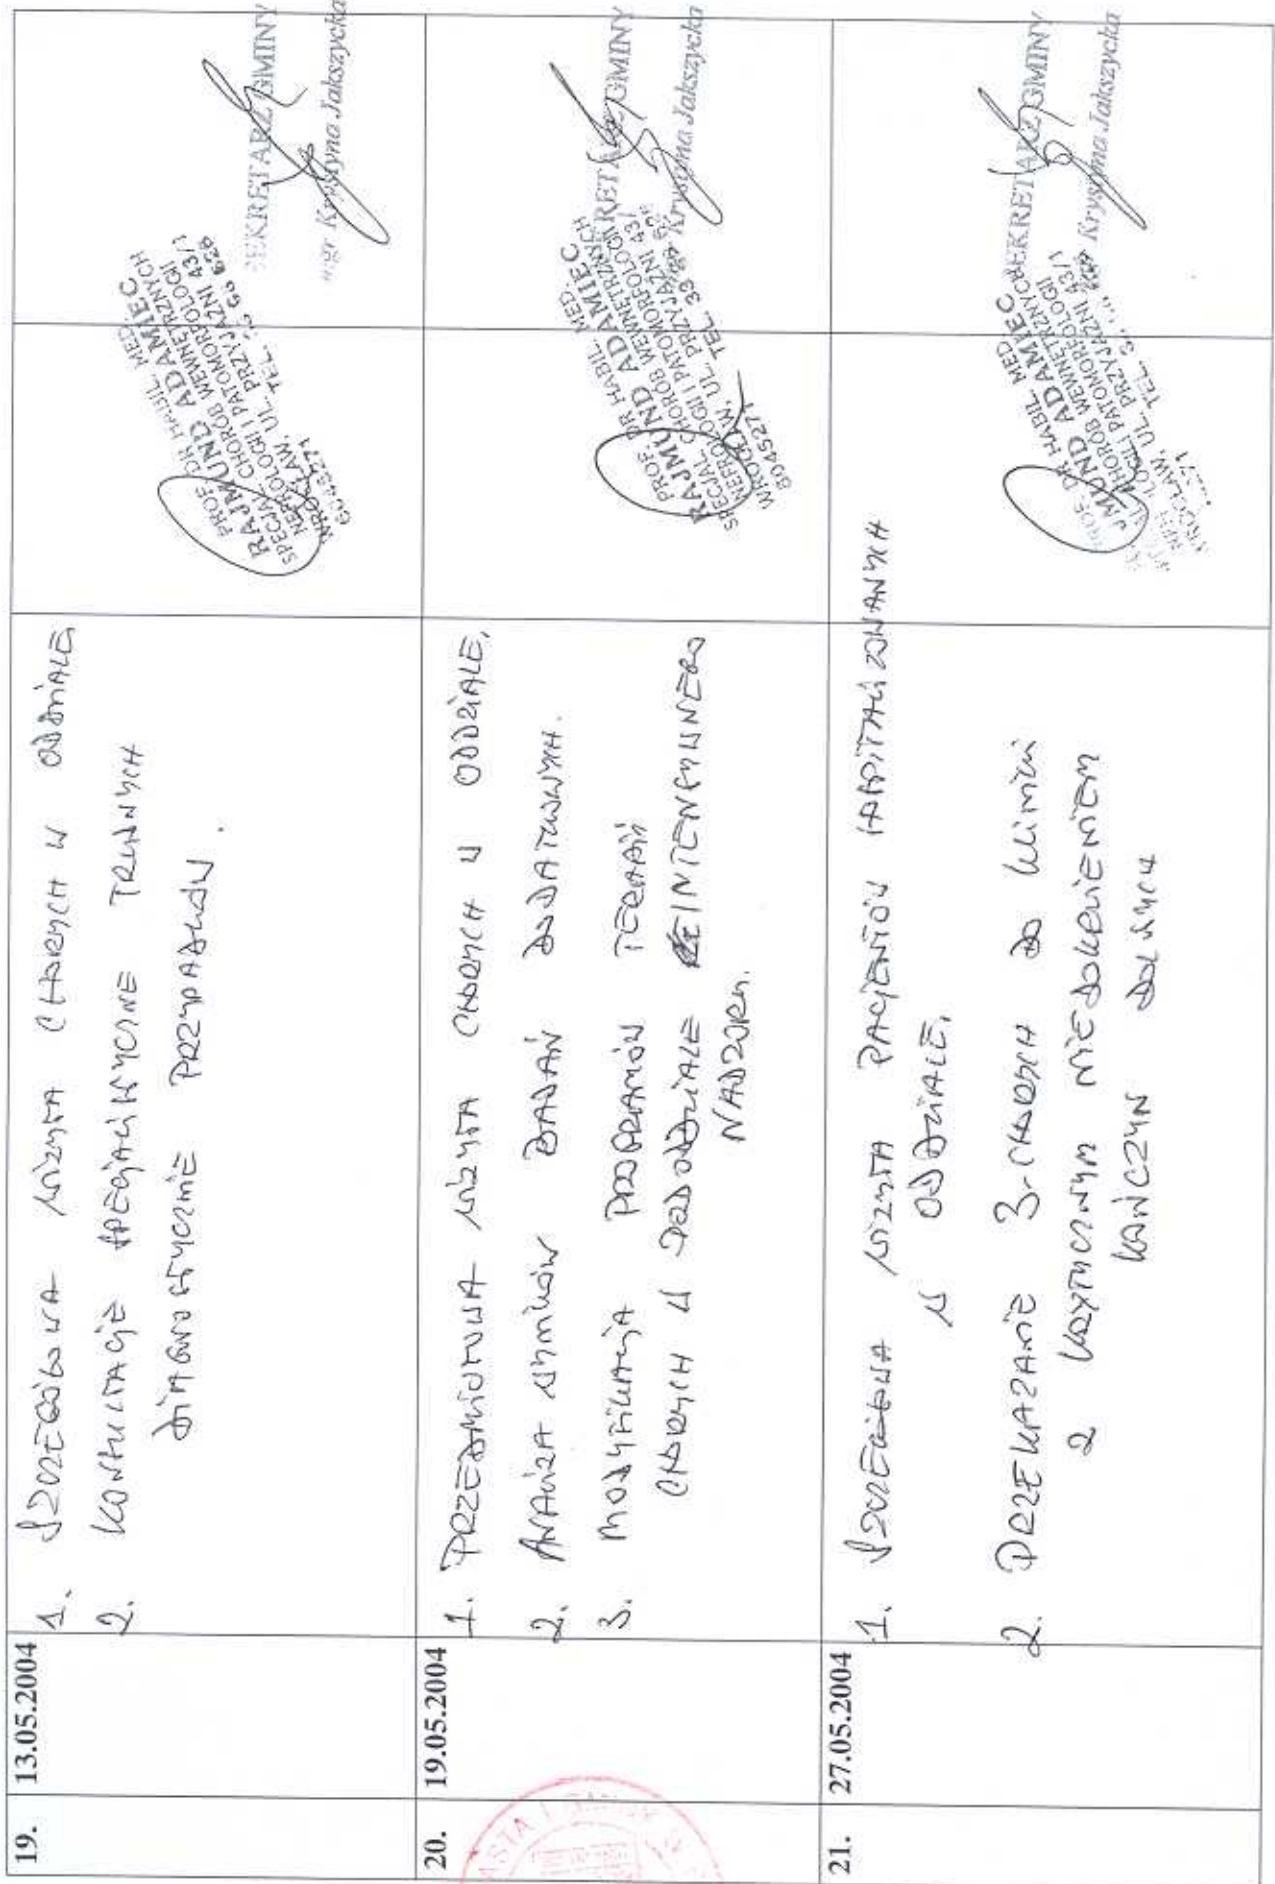 19.
13.05.2004
1. SZCZEGÓŁOWA WIZYTA CHORYCH W ODDZIALE
2. KONSULTACJE SPECJALISTYCZNE TRUDNYCH
DIAGNOSTYCZNIE PRZYPADKÓW.
PROF. DR HABIL. MED
RAJMUND ADAMIEC
SPECJAL. CHORÓB WEWNĘTRZNYCH
NEFROLOGII I PATOMORFOLOGI
WROCŁAW, UL. PRZYJAŹNI 43/1
TEL.
SEKRETARZ GMINY
mgr Krystyna Jakszycka
20.
19.05.2004
1. PRZEDMIOTOWA WIZYTA CHORYCH W ODDZIALE.
2. ANALIZA WYNIKÓW BADAŃ DODATKOWYCH.
3. MODYFIKACJA PROGRAMÓW TERAPII
CHORYCH W PODODDZIALE INTENSYWNEGO
NADZORU.
PROF. DR HABIL. MED
RAJMUND ADAMIEC
SPECJAL. CHORÓB WEWNĘTRZNYCH
NEFROLOGII I PATOMORFOLOGI
WROCŁAW, UL. PRZYJAŹNI 43/
TEL. 33
8045271
SEKRETARZ GMINY
Krystyna Jakszycka
ASTA I GMINY
21.
27.05.2004
1. SZCZEGÓŁOWA WIZYTA PACJENTÓW HOSPITALIZOWANYCH
W ODDZIALE.
2. PRZEKAZANIE 3-CHORYCH DO KLINIKI
Z KRYTYCZNYM NIEDOKRWIENIEM
KOŃCZYN DOLNYCH
PROF. DR HABIL. MED
JMUND ADAMIEC
CHORÓB WEWNĘTRZNYCH
I PATOMORFOLOGI
WROCŁAW, UL. PRZYJAŹNI 43/1
TEL.
SEKRETARZ GMINY
Krystyna Jakszycka